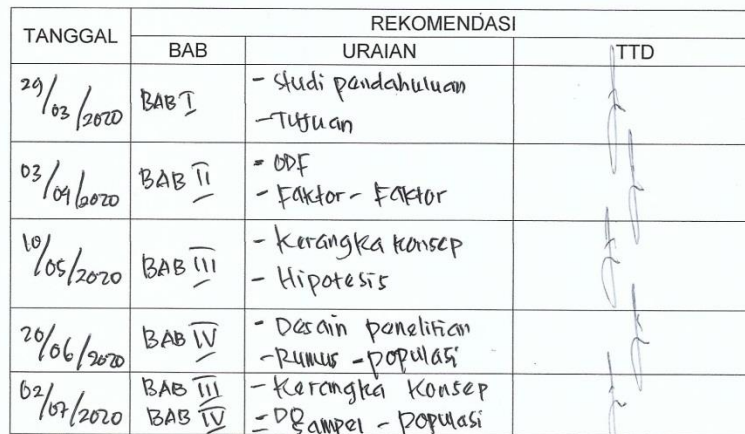 TANGGAL REKOMENDASI
BAB URAIAN TTD
29/03/2020 BAB I - Studi pendahuluan
- Tujuan
03/04/2020 BAB II - ODF
- Faktor - Faktor
10/05/2020 BAB III - Kerangka konsep
- Hipotesis
20/06/2020 BAB IV - Desain penelitian
- Rumus - populasi
02/07/2020 BAB III - Kerangka Konsep
BAB IV - DO Sampel - Populasi